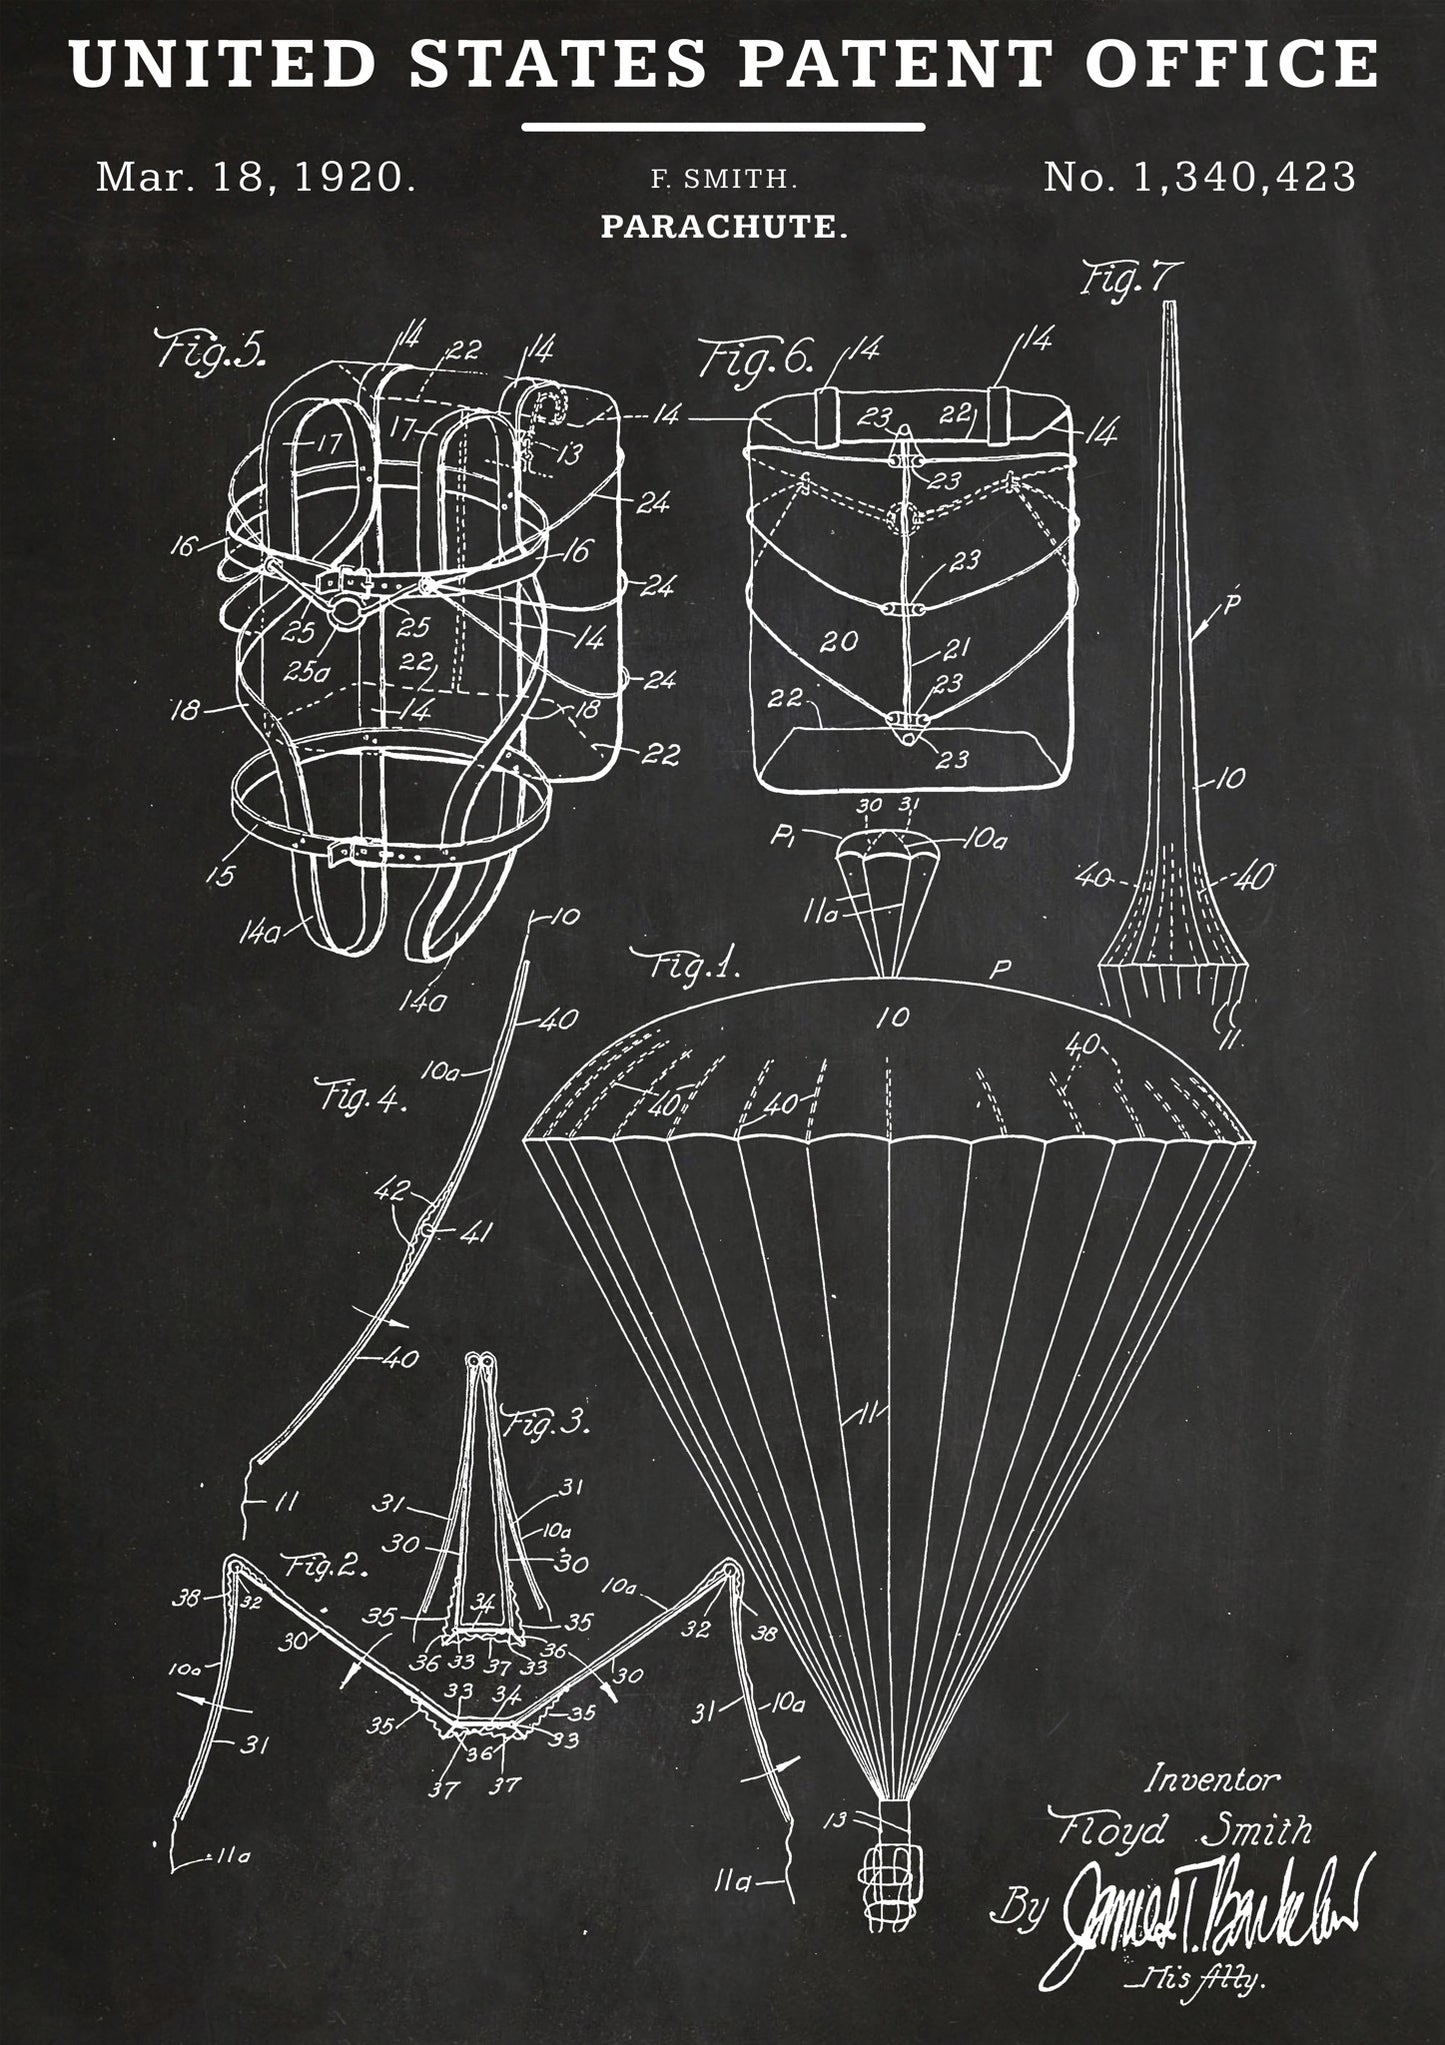 UNITED STATES PATENT OFFICE
Mar. 18, 1920.
F. SMITH.
No. 1,340,423
PARACHUTE.
Fig. 7
Fig. 5.
14
22
14
Fig. 6.
14
14
14
23
22
14
17
17
13
23
24
16
16
23
24
P
25
25
14
20
21
25a
22
24
23
18
14
18
22
22
23
10
30
31
P1
10a
15
40
40
11a
14a
10
Fig. 1.
P
14a
40
10
11
10a
40
Fig. 4.
40
40
42
41
40
11
Fig. 3.
31
31
11
30
10a
30
Fig. 2.
38
32
10a
35
34
35
32
38
30
36
33
37
33
36
30
10a
33
34
31
10a
35
35
33
31
36
37
37
Inventor
13
Floyd Smith
11a
11a
By James T.
His Atty.